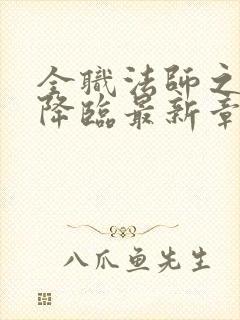 全职法师之
降临最新章
八爪鱼先生